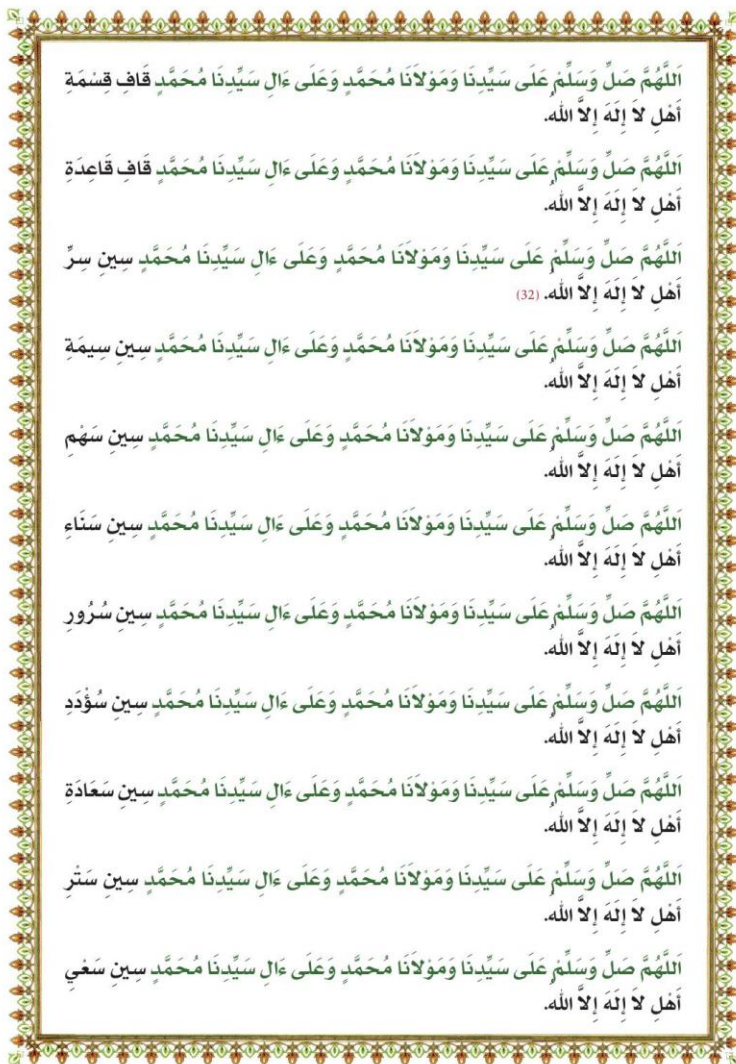 اَللَّهُمَّ صَلِّ وَسَلِّمْ عَلَى سَيِّدِنَا وَمَوْلاَنَا مُحَمَّدٍ وَعَلَى ءَالِ سَيِّدِنَا مُحَمَّدٍ قَافِ قِسْمَةِ
أَهْلِ لاَ إِلَهَ إِلاَّ الله.
اَللَّهُمَّ صَلِّ وَسَلِّمْ عَلَى سَيِّدِنَا وَمَوْلاَنَا مُحَمَّدٍ وَعَلَى ءَالِ سَيِّدِنَا مُحَمَّدٍ قَافِ قَاعِدَةِ
أَهْلِ لاَ إِلَهَ إِلاَّ الله.
اَللَّهُمَّ صَلِّ وَسَلِّمْ عَلَى سَيِّدِنَا وَمَوْلاَنَا مُحَمَّدٍ وَعَلَى ءَالِ سَيِّدِنَا مُحَمَّدٍ سِينِ سِرِّ
أَهْلِ لاَ إِلَهَ إِلاَّ الله. (32)
اَللَّهُمَّ صَلِّ وَسَلِّمْ عَلَى سَيِّدِنَا وَمَوْلاَنَا مُحَمَّدٍ وَعَلَى ءَالِ سَيِّدِنَا مُحَمَّدٍ سِينِ سِيمَةِ
أَهْلِ لاَ إِلَهَ إِلاَّ الله.
اَللَّهُمَّ صَلِّ وَسَلِّمْ عَلَى سَيِّدِنَا وَمَوْلاَنَا مُحَمَّدٍ وَعَلَى ءَالِ سَيِّدِنَا مُحَمَّدٍ سِينِ سَهْمِ
أَهْلِ لاَ إِلَهَ إِلاَّ الله.
اَللَّهُمَّ صَلِّ وَسَلِّمْ عَلَى سَيِّدِنَا وَمَوْلاَنَا مُحَمَّدٍ وَعَلَى ءَالِ سَيِّدِنَا مُحَمَّدٍ سِينِ سَنَاءِ
أَهْلِ لاَ إِلَهَ إِلاَّ الله.
اَللَّهُمَّ صَلِّ وَسَلِّمْ عَلَى سَيِّدِنَا وَمَوْلاَنَا مُحَمَّدٍ وَعَلَى ءَالِ سَيِّدِنَا مُحَمَّدٍ سِينِ سُرُورِ
أَهْلِ لاَ إِلَهَ إِلاَّ الله.
اَللَّهُمَّ صَلِّ وَسَلِّمْ عَلَى سَيِّدِنَا وَمَوْلاَنَا مُحَمَّدٍ وَعَلَى ءَالِ سَيِّدِنَا مُحَمَّدٍ سِينِ سُؤْدَدِ
أَهْلِ لاَ إِلَهَ إِلاَّ الله.
اَللَّهُمَّ صَلِّ وَسَلِّمْ عَلَى سَيِّدِنَا وَمَوْلاَنَا مُحَمَّدٍ وَعَلَى ءَالِ سَيِّدِنَا مُحَمَّدٍ سِينِ سَعَادَةِ
أَهْلِ لاَ إِلَهَ إِلاَّ الله.
اَللَّهُمَّ صَلِّ وَسَلِّمْ عَلَى سَيِّدِنَا وَمَوْلاَنَا مُحَمَّدٍ وَعَلَى ءَالِ سَيِّدِنَا مُحَمَّدٍ سِينِ سَتْرِ
أَهْلِ لاَ إِلَهَ إِلاَّ الله.
اَللَّهُمَّ صَلِّ وَسَلِّمْ عَلَى سَيِّدِنَا وَمَوْلاَنَا مُحَمَّدٍ وَعَلَى ءَالِ سَيِّدِنَا مُحَمَّدٍ سِينِ سَعْيِ
أَهْلِ لاَ إِلَهَ إِلاَّ الله.